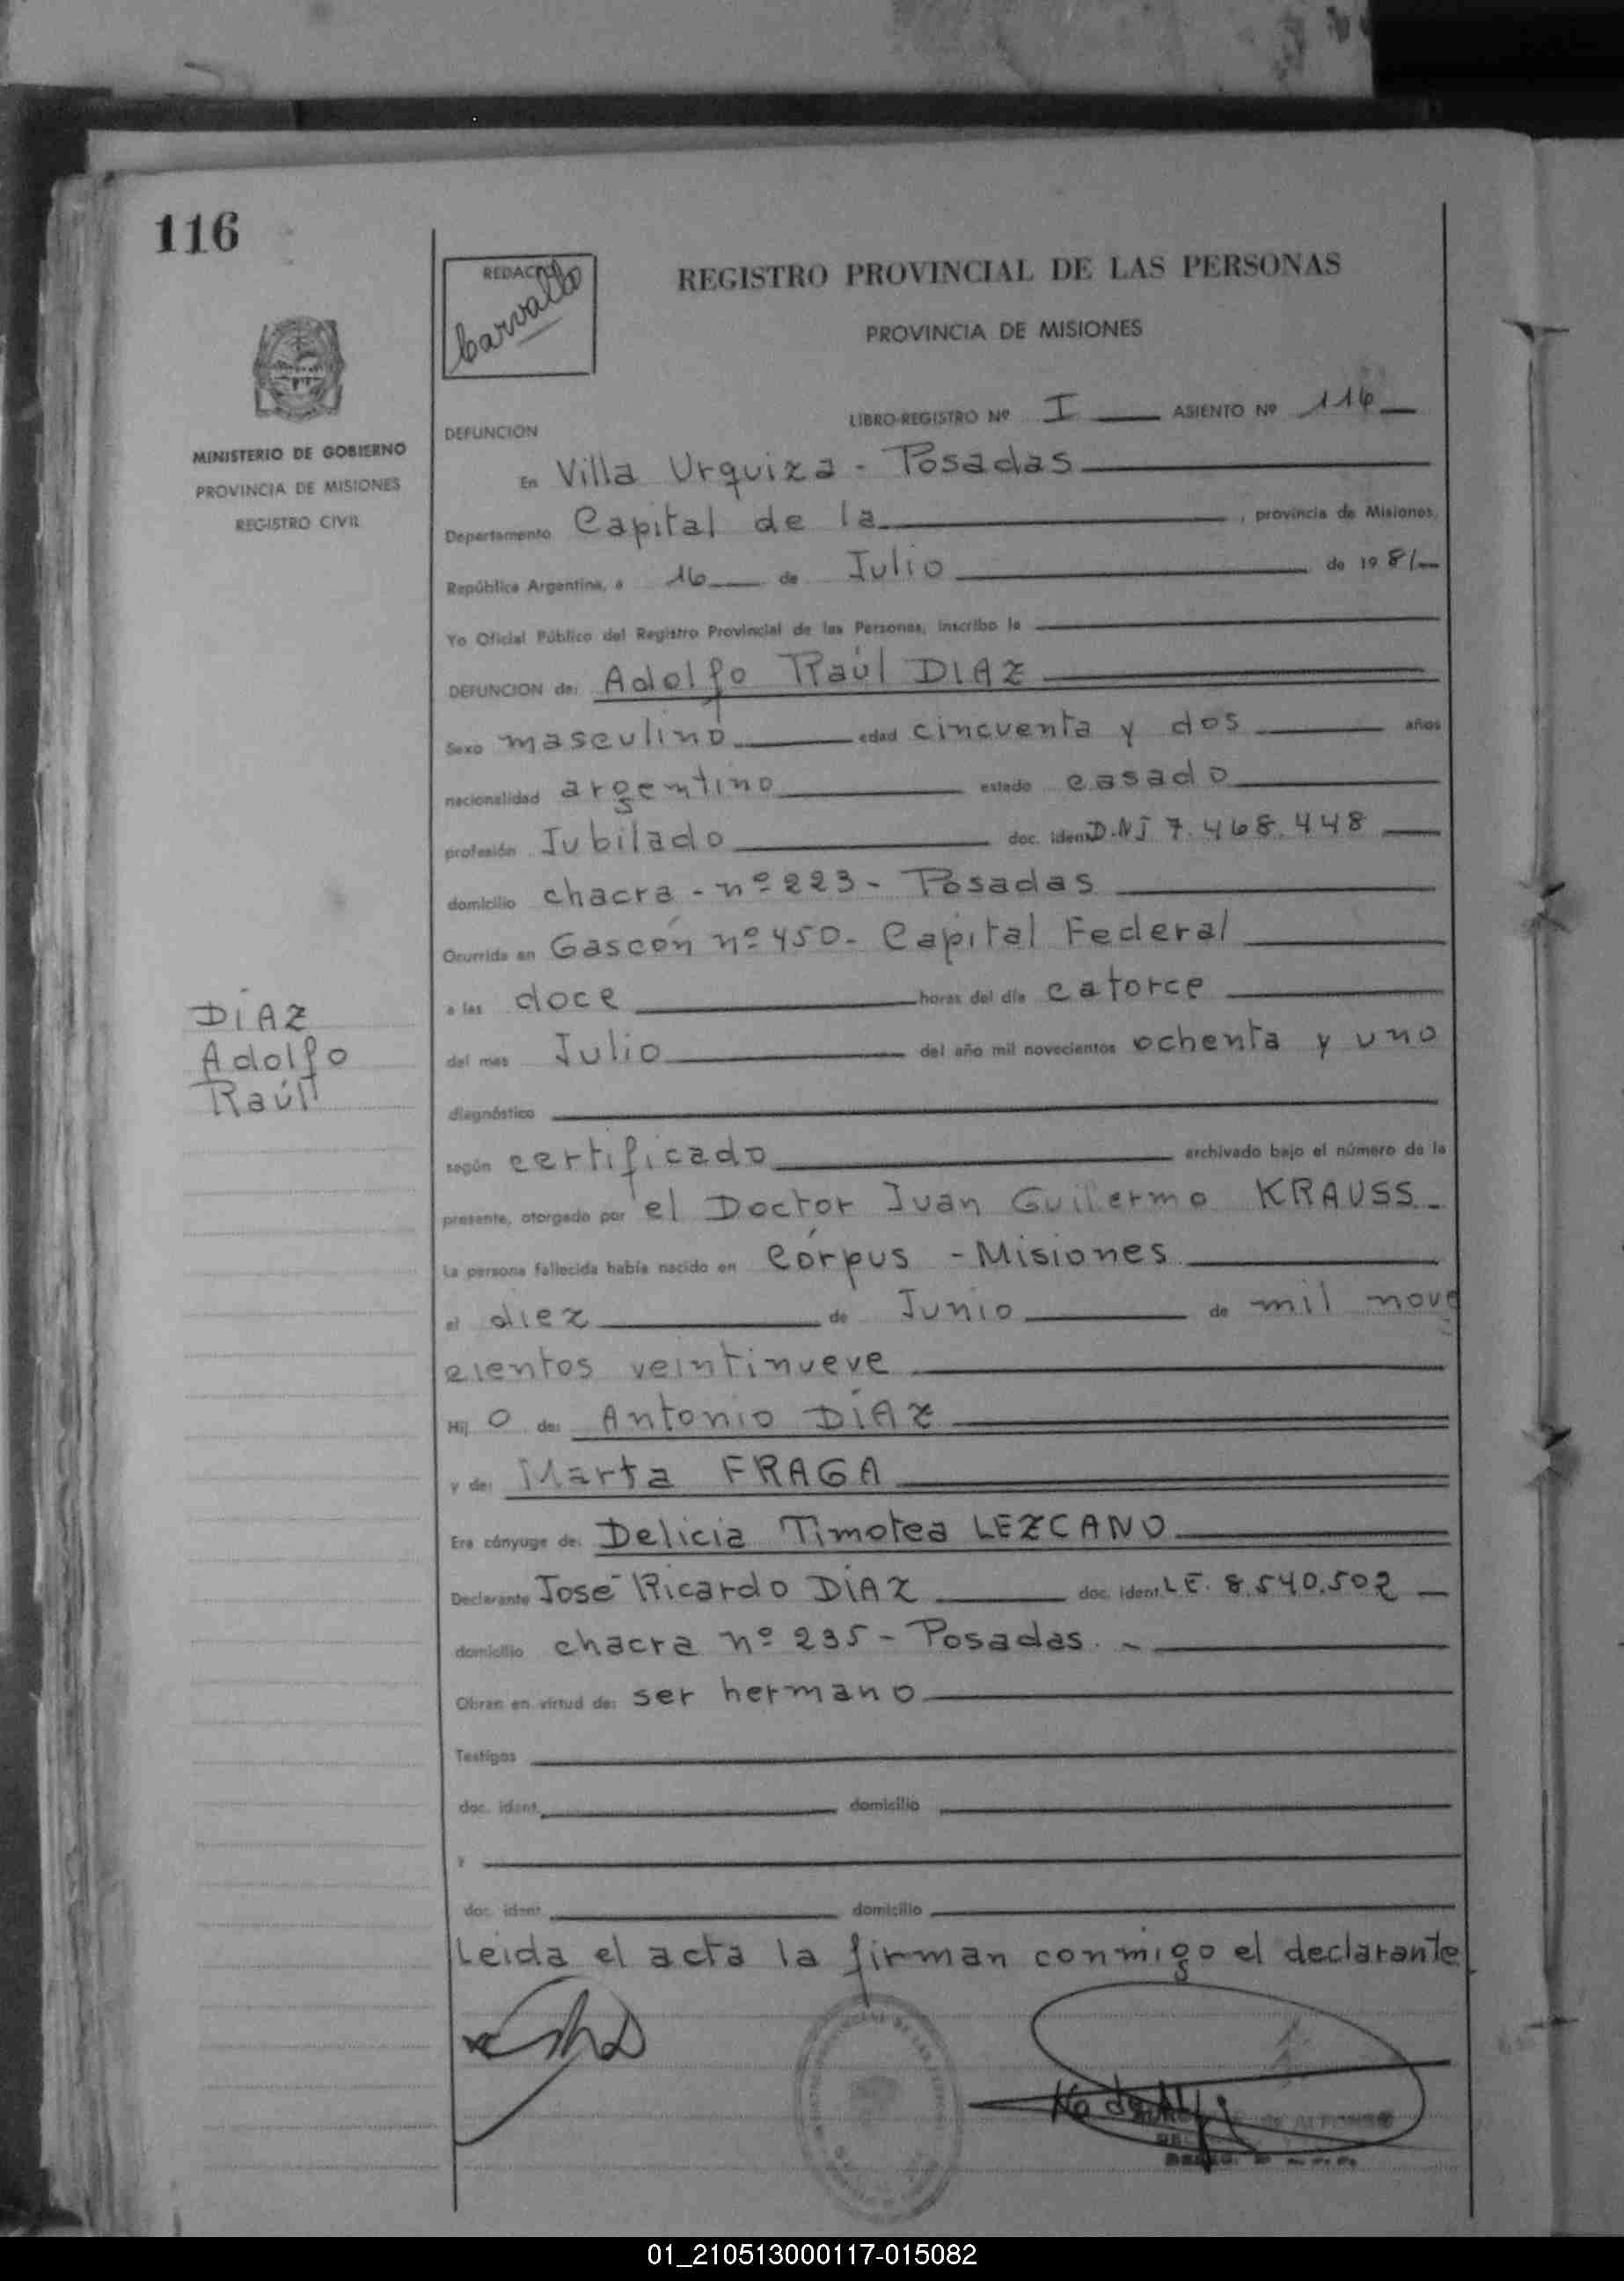 116
REDACTO
Carvallo
REGISTRO PROVINCIAL DE LAS PERSONAS
PROVINCIA DE MISIONES
MINISTERIO DE GOBIERNO
PROVINCIA DE MISIONES
REGISTRO CIVIL
LIBRO-REGISTRO Nº I ASIENTO Nº 116
DEFUNCION
En Villa Urquiza - Posadas
Departamento Capital de la , provincia de Misiones,
República Argentina, a 16 de Julio de 1981
Yo Oficial Público del Registro Provincial de las Personas, inscribo la
DEFUNCION de: Adolfo Raúl DIAZ
Sexo masculino edad cincuenta y dos años
nacionalidad argentino estado casado
profesión Jubilado doc. iden D.N.I 7.468.448
domicilio chacra - nº 223 - Posadas
Ocurrida en Gascón nº 450 - Capital Federal
a las doce horas del día catorce
del mes Julio del año mil novecientos ochenta y uno
DIAZ
Adolfo
Raúl
diagnóstico
según certificado archivado bajo el número de la
presente, otorgado por el Doctor Juan Guillermo KRAUSS -
La persona fallecida había nacido en Córpus - Misiones
el diez de Junio de mil nove
cientos veintinueve
Hij o de: Antonio DIAZ
y de: Marta FRAGA
Era cónyuge de: Delicia Timotea LEZCANO
Declarante José Ricardo DIAZ doc. ident. L.E. 8.540.502
domicilio chacra nº 235 - Posadas. -
Obran en virtud de: ser hermano
Testigos
doc. ident. domicilio
y
doc. ident. domicilio
Leida el acta la firman conmigo el declarante
DE ALFONSO
01_210513000117-015082